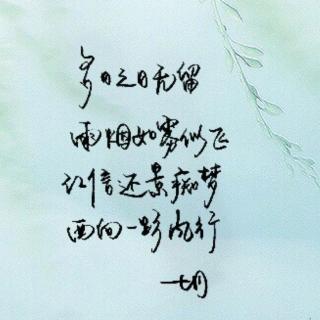 日之日无留
雨烟如雾似飞
信还景痴梦
向一影行
一七月